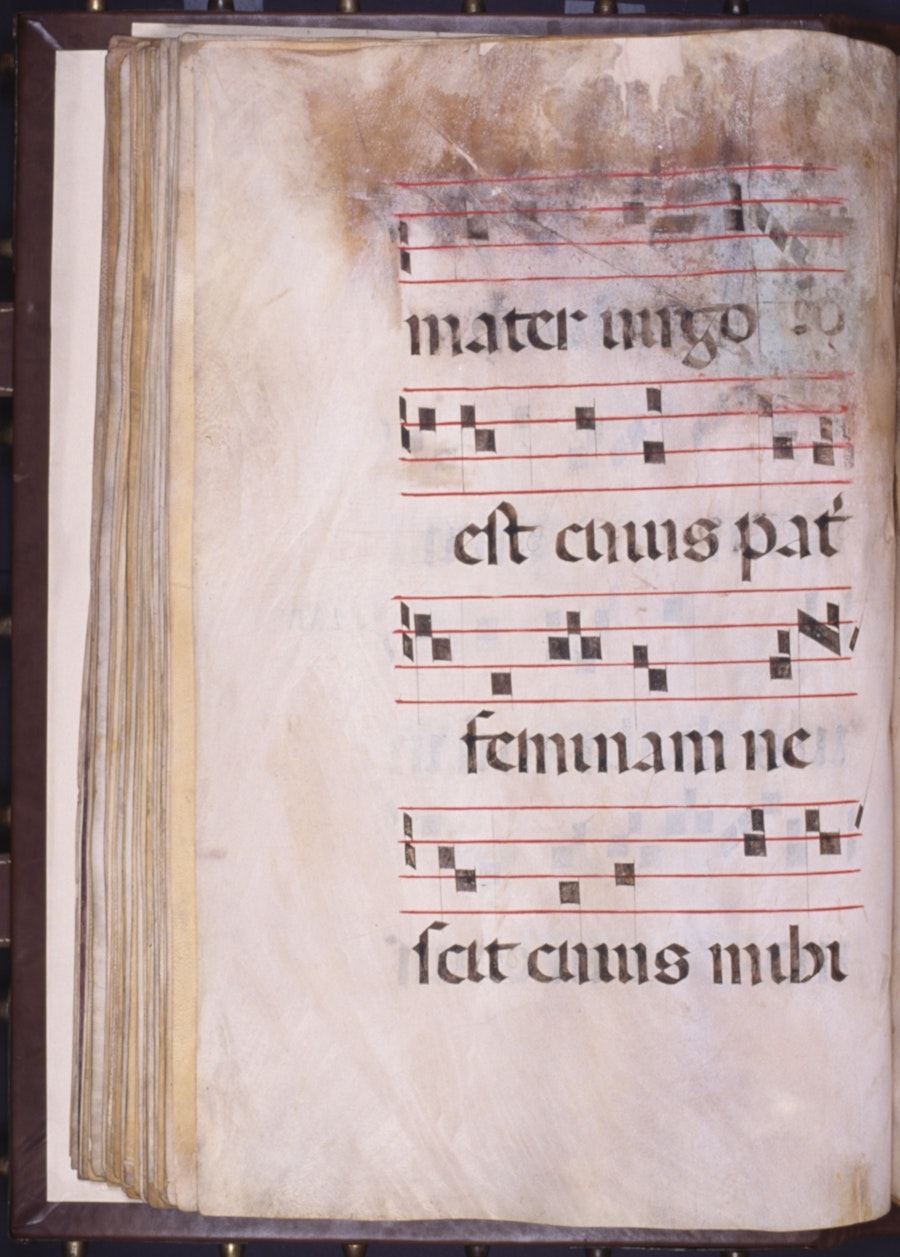 mater uirgo
est cuius pat̄
feminam ne
scit cuius mihi